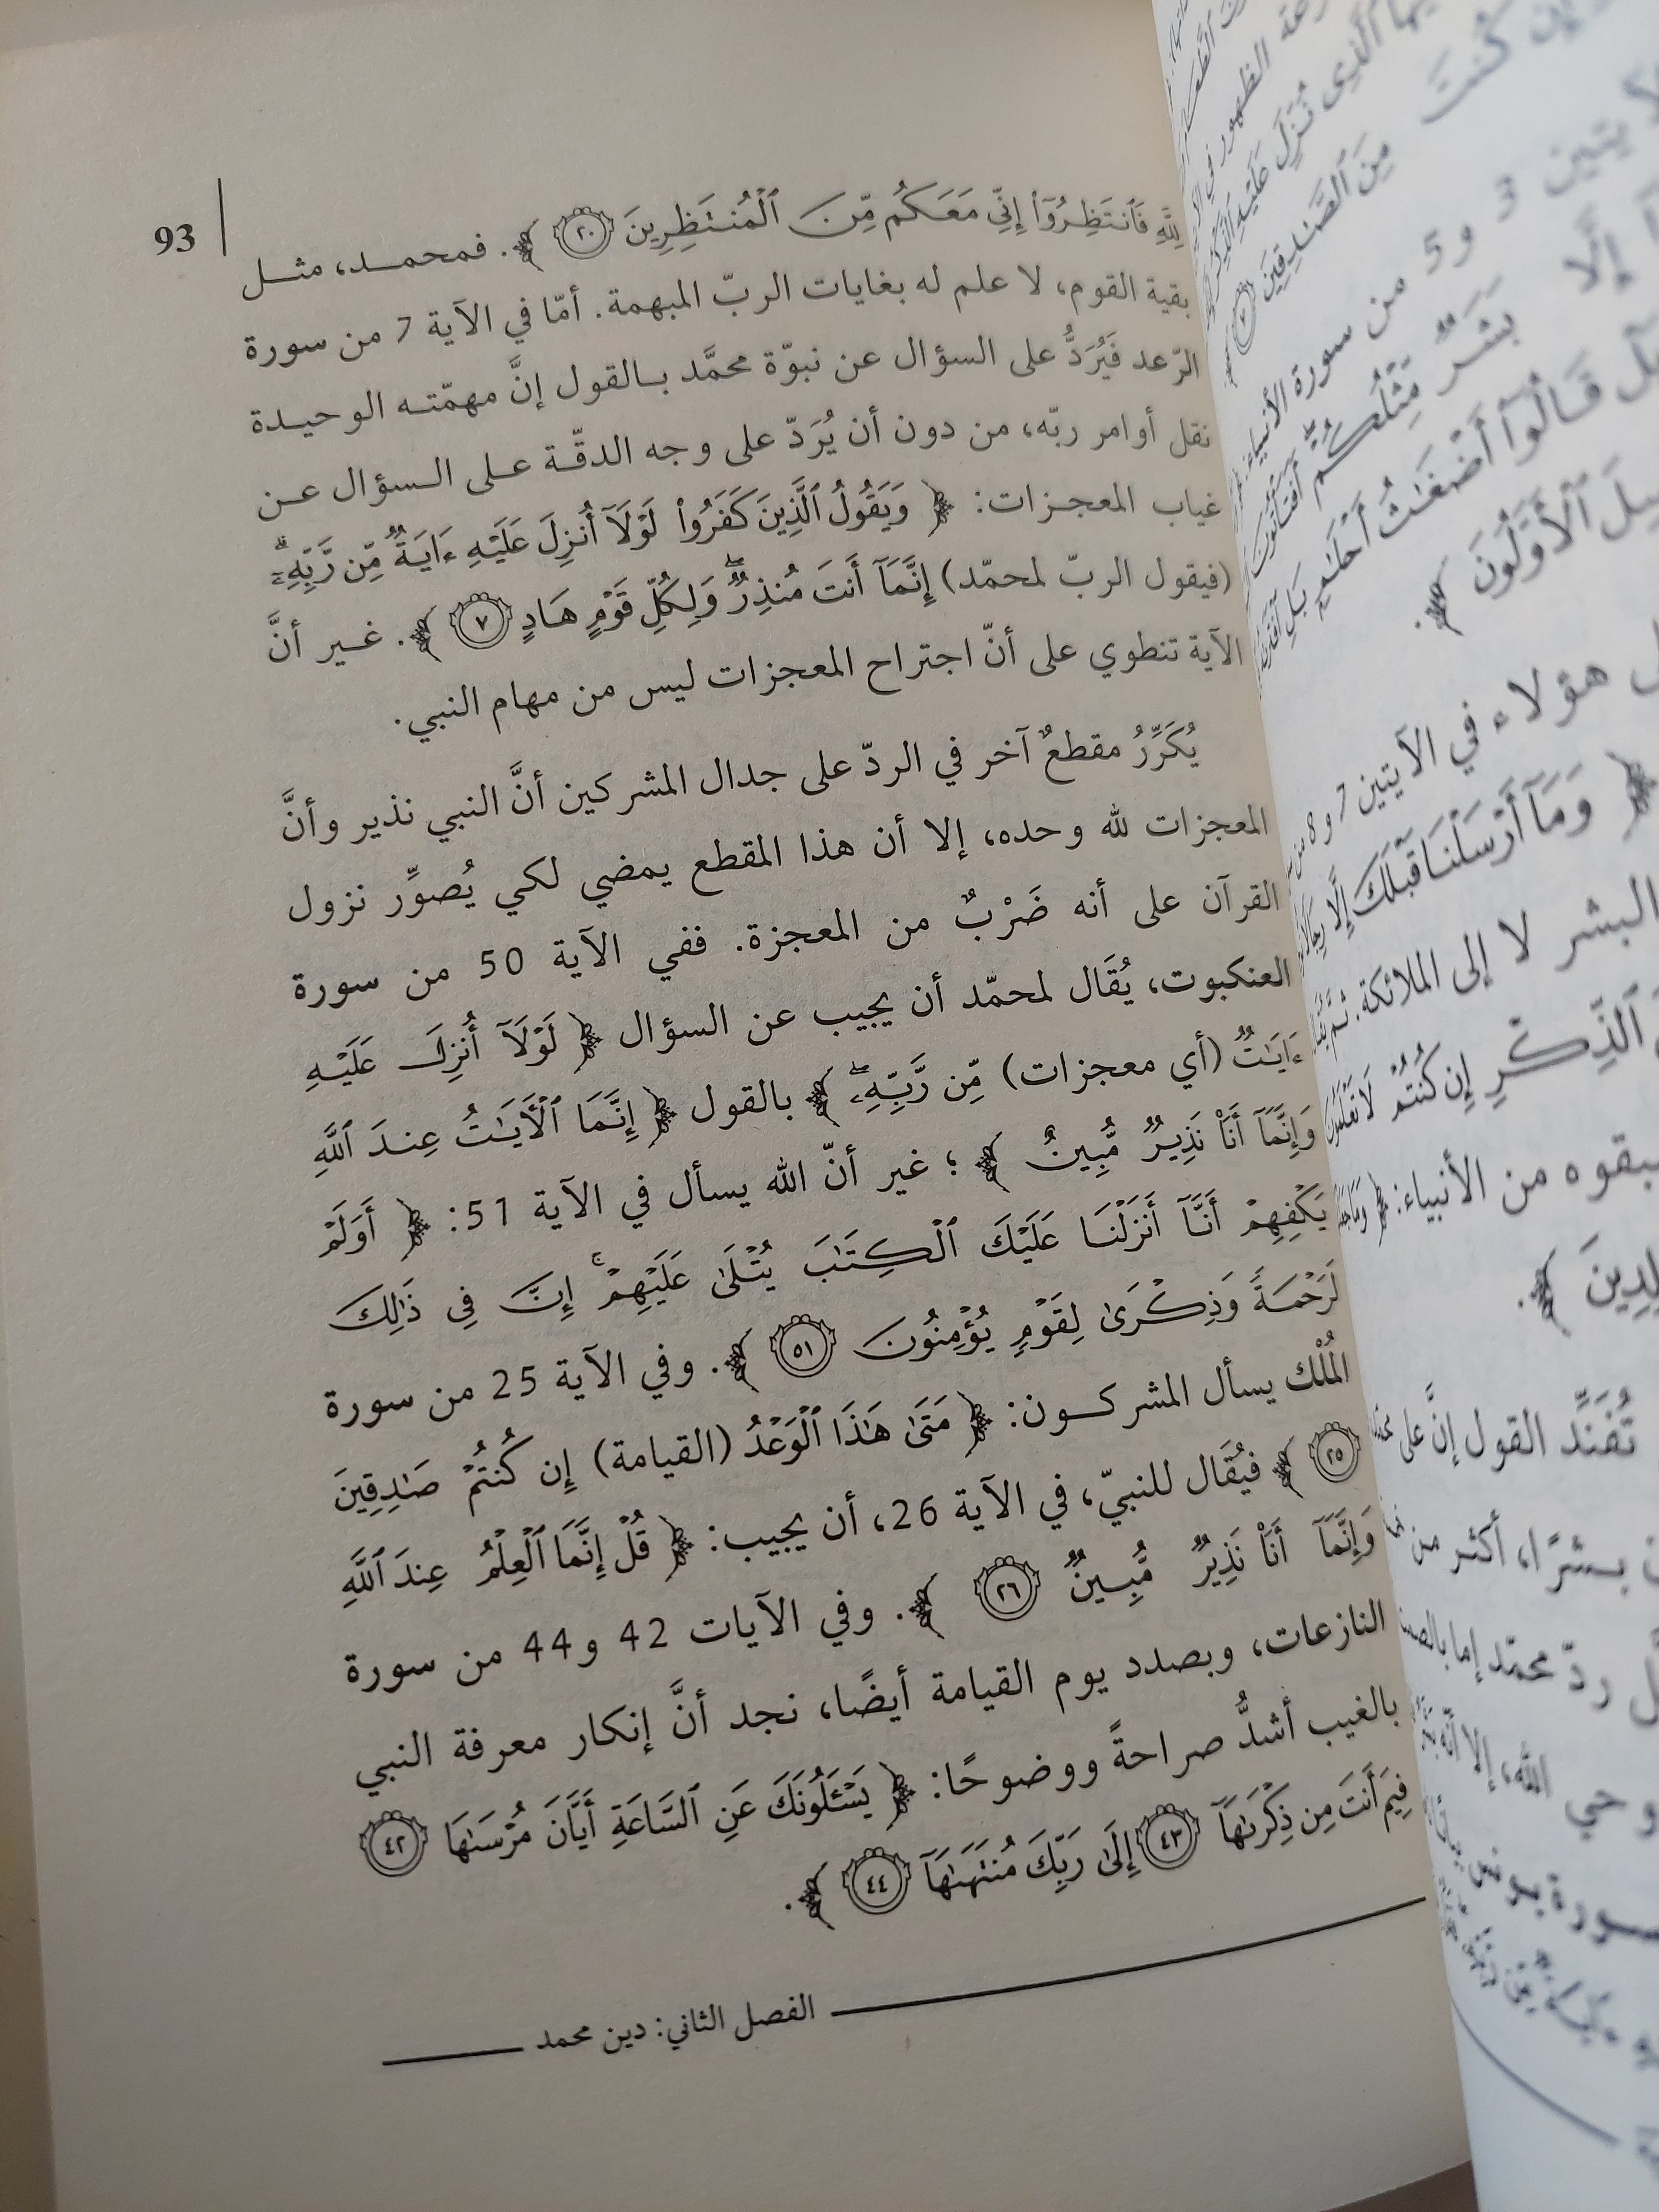 93
لِلَّهِ فَٱنتَظِرُوٓا۟ إِنِّى مَعَكُم مِّنَ ٱلْمُنتَظِرِينَ ﴿٢٠﴾. فمحمد، مثل
بقية القوم، لا علم له بغايات الربّ المبهمة. أمّا في الآية 7 من سورة
الرّعد فَيُرَدُّ على السؤال عن نبوّة محمَّد بالقول إنَّ مهمّته الوحيدة
نقل أوامر ربّه، من دون أن يُرَدّ على وجه الدقّة على السؤال عن
غياب المعجزات: ﴿ وَيَقُولُ ٱلَّذِينَ كَفَرُوا۟ لَوْلَآ أُنزِلَ عَلَيْهِ ءَايَةٌ مِّن رَّبِّهِۦٓ ۗ
(فيقول الربّ لمحمّد) إِنَّمَآ أَنتَ مُنذِرٌ ۖ وَلِكُلِّ قَوْمٍ هَادٍ ٧ ﴾. غير أنَّ
الآية تنطوي على أنّ اجتراح المعجزات ليس من مهام النبي.
يُكَرِّرُ مقطعٌ آخر في الردّ على جدال المشركين أنَّ النبي نذير وأنَّ
المعجزات لله وحده، إلا أن هذا المقطع يمضي لكي يُصوِّر نزول
القرآن على أنه ضَرْبٌ من المعجزة. ففي الآية 50 من سورة
العنكبوت، يُقَال لمحمّد أن يجيب عن السؤال ﴿ لَوْلَآ أُنزِلَ عَلَيْهِ
ءَايَٰتٌ (أي معجزات) مِّن رَّبِّهِۦ ۖ ﴾ بالقول ﴿ إِنَّمَا ٱلْأَيَٰتُ عِندَ ٱللَّهِ
وَإِنَّمَآ أَنَا۠ نَذِيرٌ مُّبِينٌ ﴾؛ غير أنّ الله يسأل في الآية 51: ﴿ أَوَلَمْ
يَكْفِهِمْ أَنَّآ أَنزَلْنَا عَلَيْكَ ٱلْكِتَٰبَ يُتْلَىٰ عَلَيْهِمْ ۚ إِنَّ فِى ذَٰلِكَ
لَرَحْمَةً وَذِكْرَىٰ لِقَوْمٍ يُؤْمِنُونَ ٥١ ﴾. وفي الآية 25 من سورة
المُلْك يسأل المشركون: ﴿ مَتَىٰ هَٰذَا ٱلْوَعْدُ (القيامة) إِن كُنتُمْ صَٰدِقِينَ
٢٥ ﴾ فيُقَال للنبيّ، في الآية 26، أن يجيب: ﴿ قُلْ إِنَّمَا ٱلْعِلْمُ عِندَ ٱللَّهِ
وَإِنَّمَآ أَنَا۠ نَذِيرٌ مُّبِينٌ ٢٦ ﴾. وفي الآيات 42 و44 من سورة
النازعات، وبصدد يوم القيامة أيضًا، نجد أنَّ إنكار معرفة النبي
بالغيب أشدُّ صراحةً ووضوحًا: ﴿ يَسْـَٔلُونَكَ عَنِ ٱلسَّاعَةِ أَيَّانَ مُرْسَىٰهَا ٤٢
فِيمَ أَنتَ مِن ذِكْرَىٰهَآ ٤٣ إِلَىٰ رَبِّكَ مُنتَهَىٰهَآ ٤٤ ﴾.
الفصل الثاني: دين محمد
وإن كنت
مِنَ ٱلصَّٰدِقِينَ ٧
يتين 3 و5 من سورة الأنبياء
إِلَّا بَشَرٌ مِّثْلُكُمْ
قَالُوٓا۟ أَضْغَٰثُ أَحْلَٰمٍ بَلِ
ٱلْأَوَّلُونَ ﴾.
هؤلاء في الآيتين 7 و8
﴿ وَمَآ أَرْسَلْنَا قَبْلَكَ إِلَّا رِجَالًا
البشر لا إلى الملائكة.
ٱلذِّكْرِ إِن كُنتُمْ لَا تَعْلَمُونَ
سبقوه من الأنبياء: ﴿
تُفَنِّد القول إنَّ على
بشرًا، أكثر من
ردّ محمّد إما
وحي الله، إلا أنّه
سورة يونس